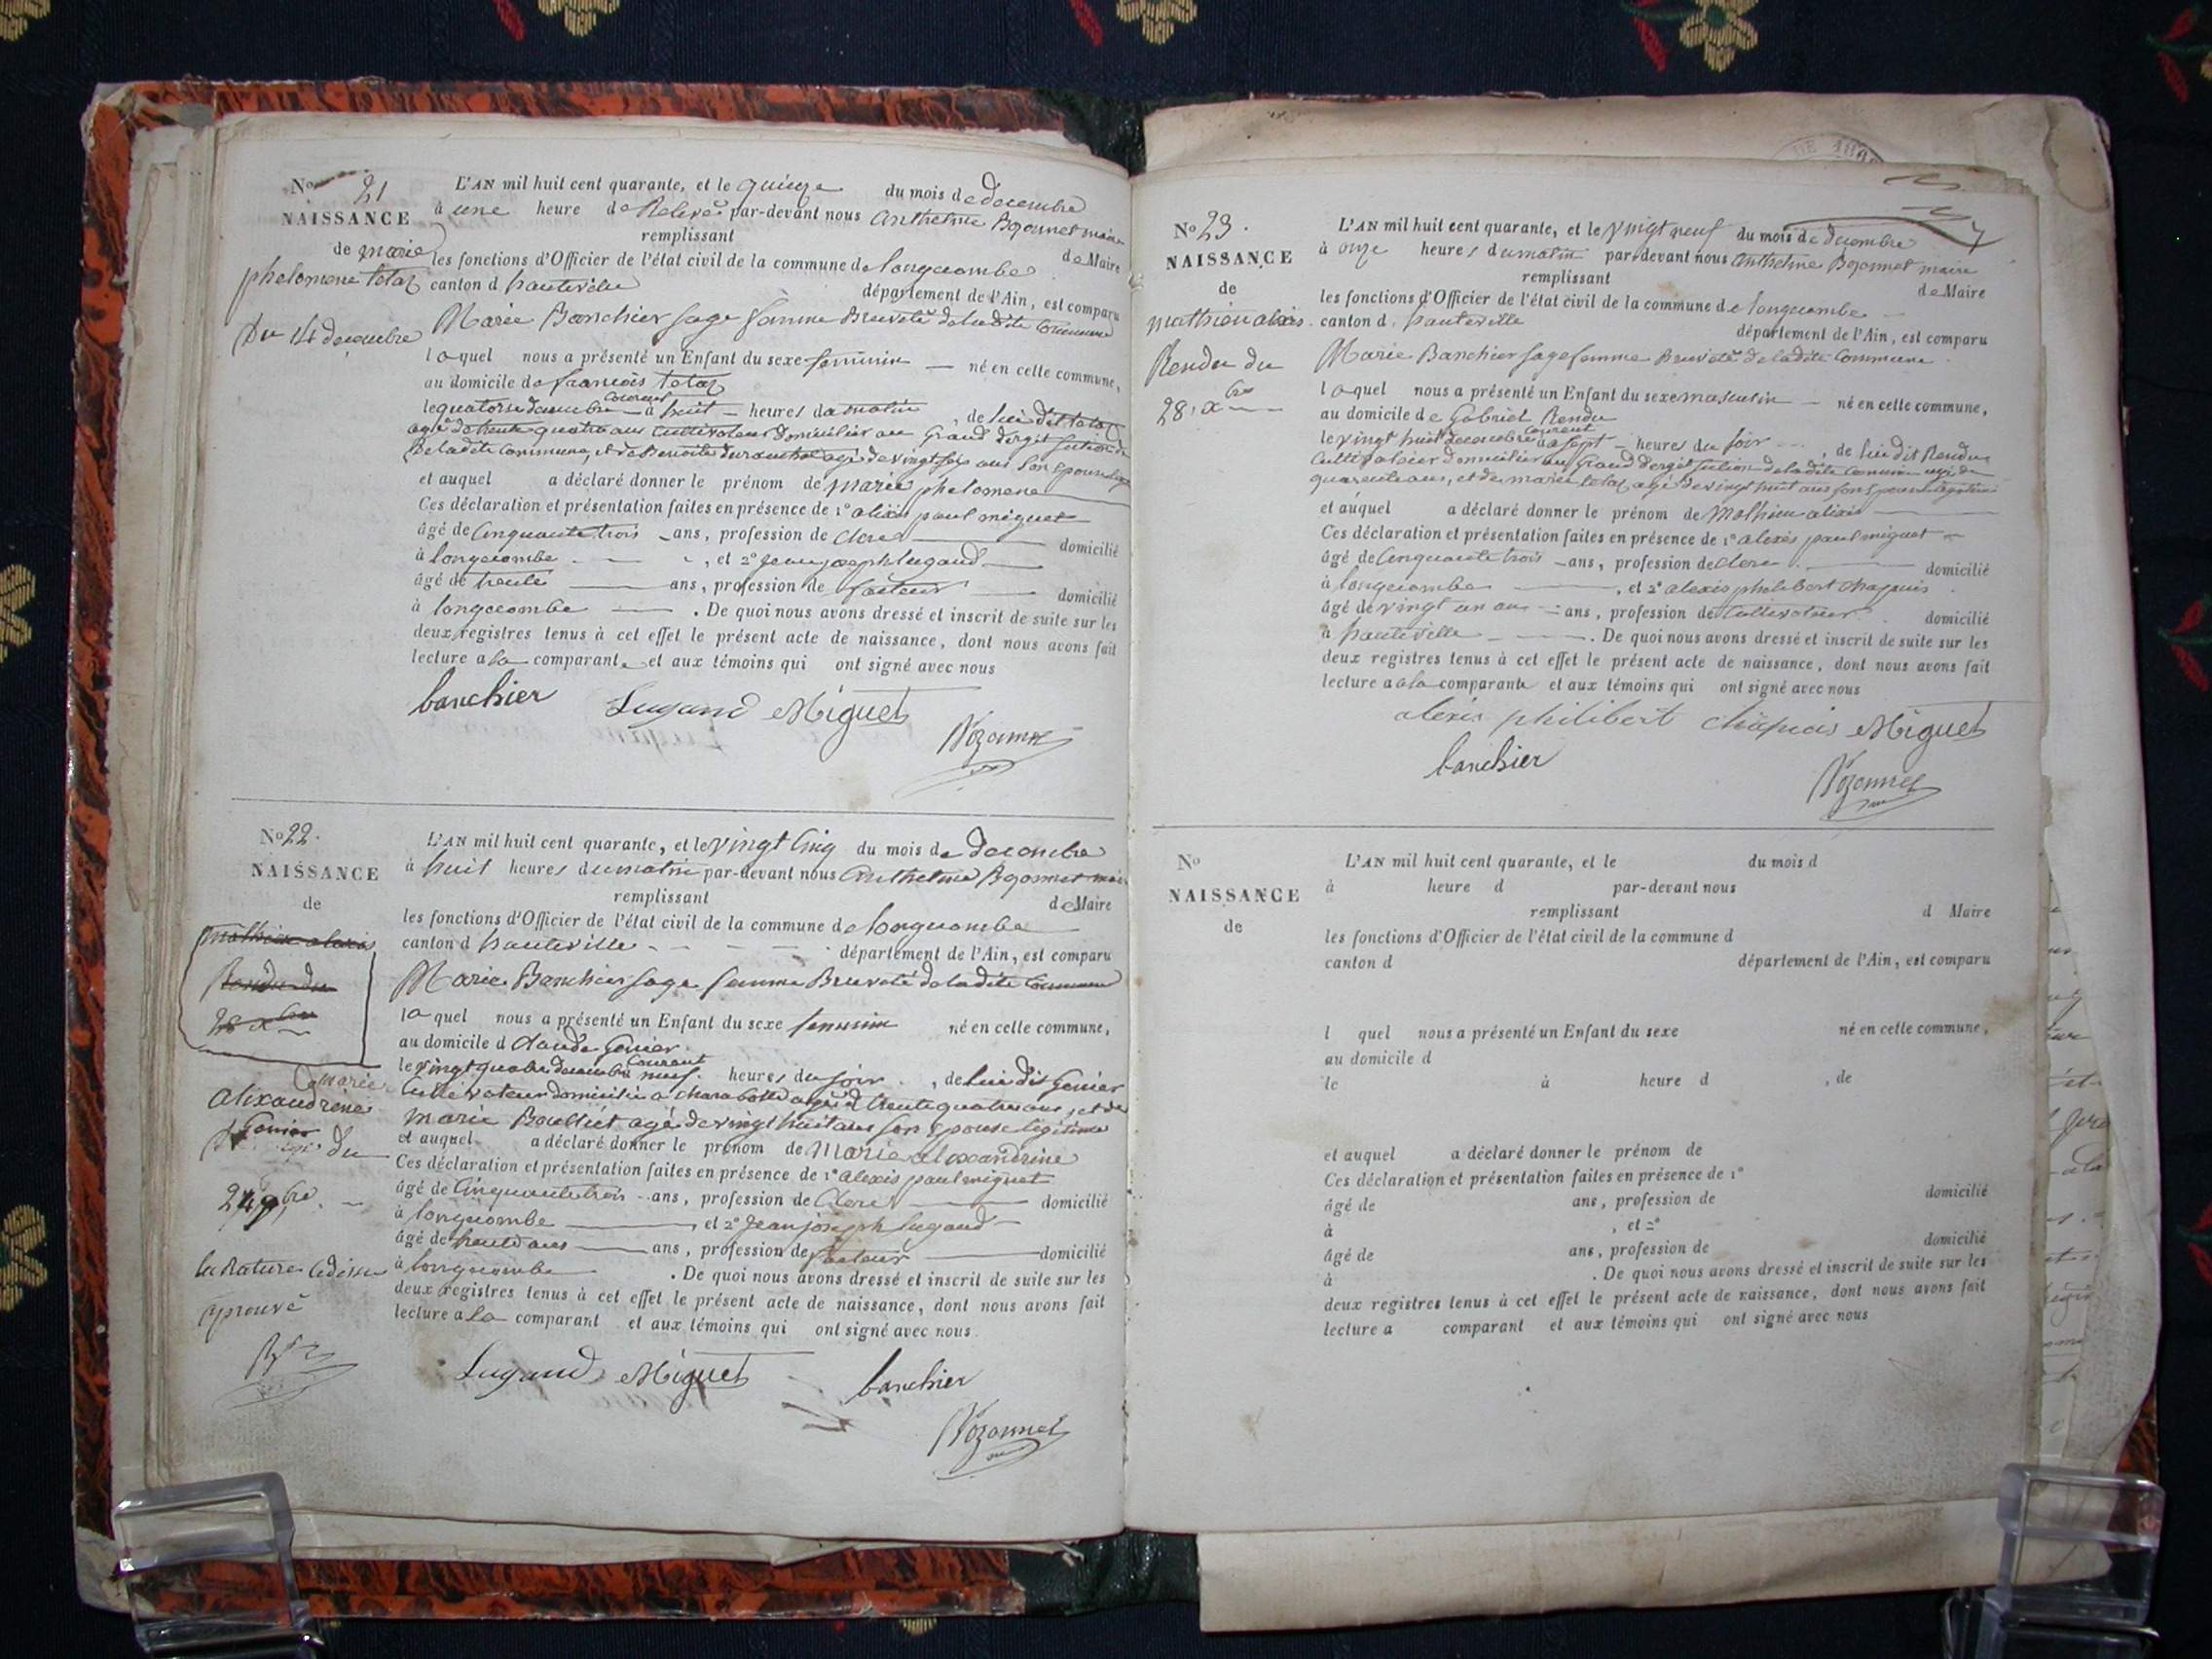 No 21
NAISSANCE
de marie
phelomene tetaz
Du 14 decembre
L'AN mil huit cent quarante, et le quinze du mois de decembre
à une heure de Relevé par-devant nous anthelme Bozonnet maire
remplissant de Maire
les fonctions d'Officier de l'état civil de la commune de longecombe
canton d hauteville département de l'Ain, est comparu
Marie Banchier sage femme Breveté de ladite Commune
laquel nous a présenté un Enfant du sexe feminin né en cette commune,
au domicile de françois tetaz
le quatorse decembre courant à huit heures du matin, de lui dit tetaz
agé de trente quatre ans Cultivateur Domicilier au Grand dergit section de
De ladite Commune, et de Benoite agé de vingt six ans son Epouse
et auquel a déclaré donner le prénom de marie phelomene
Ces déclaration et présentation faites en présence de 1º alexis paul miguet
âgé de Cinquante trois ans, profession de Clerc domicilié
à longecombe, et 2º Jean joseph lugand
âgé de trente ans, profession de facteur domicilié
à longecombe. De quoi nous avons dressé et inscrit de suite sur les
deux registres tenus à cet effet le présent acte de naissance, dont nous avons fait
lecture a la comparante et aux témoins qui ont signé avec nous
banchier Lugand Miguet
Bozonnet
No 22.
NAISSANCE
de
mathieu alexis
Rendu du
28 xbre
marie
alixandrine
Genier
du
24
la Rature Cidessu
aprouvé
L'AN mil huit cent quarante, et le vingt Cinq du mois de decembre
à huit heures du matin par-devant nous Anthelme Bozonnet maire
remplissant de Maire
les fonctions d'Officier de l'état civil de la commune de longecombe
canton d hauteville département de l'Ain, est comparu
Marie Banchier sage femme Breveté de ladite Commune
laquel nous a présenté un Enfant du sexe feminin né en cette commune,
au domicile d Claude Genier
le vingt quatre decembre courant neuf heures du soir, de lui dit Genier
Cultivateur domicilié a charabotte agé d trente quatre ans, et de
marie Bouttiet agé de vingt huit ans son Epouse legitime
et auquel a déclaré donner le prénom de Marie alexandrine
Ces déclaration et présentation faites en présence de 1º alexis paul miguet
âgé de Cinquante trois ans, profession de Clerc domicilié
à longecombe, et 2º Jean joseph lugand
âgé de trente ans ans, profession de facteur domicilié
à longecombe. De quoi nous avons dressé et inscrit de suite sur les
deux registres tenus à cet effet le présent acte de naissance, dont nous avons fait
lecture a la comparant et aux témoins qui ont signé avec nous.
Lugand Miguet banchier
Bozonnet
No 23.
NAISSANCE
de
mathieu alexis
Rendu du
28 xbre
L'AN mil huit cent quarante, et le vingt neuf du mois de decembre
à onze heures du matin par-devant nous anthelme Bozonnet maire
remplissant de Maire
les fonctions d'Officier de l'état civil de la commune de longecombe
canton d. hauteville département de l'Ain, est comparu
Marie Banchier sage femme Breveté de ladite Commune
laquel nous a présenté un Enfant du sexe masculin né en cette commune,
au domicile de Gabriel Rendu
le vingt huit decembre courant à sept heures du soir, de lui dit Rendu
Cultivateur domicilier au Grand dergit section de ladite Commune agé de
quarente ans, et de marie tetaz agé de vingt huit ans son Epouse legitime
et auquel a déclaré donner le prénom de Mathieu alexis
Ces déclaration et présentation faites en présence de 1º alexis paul miguet
âgé de Cinquante trois ans, profession de Clerc domicilié
à longecombe, et 2º alexis philibert chapuis
âgé de vingt un ans ans, profession de Cultivateur domicilié
à hauteville. De quoi nous avons dressé et inscrit de suite sur les
deux registres tenus à cet effet le présent acte de naissance, dont nous avons fait
lecture a la comparante et aux témoins qui ont signé avec nous
alexis philibert chapuis Miguet
banchier
Bozonnet
No
NAISSANCE
de
L'AN mil huit cent quarante, et le du mois d
à heure d par-devant nous
remplissant d Maire
les fonctions d'Officier de l'état civil de la commune d
canton d département de l'Ain, est comparu
l quel nous a présenté un Enfant du sexe né en cette commune,
au domicile d
le à heure d, de
et auquel a déclaré donner le prénom de
Ces déclaration et présentation faites en présence de 1º
âgé de ans, profession de domicilié
à, et 2º
âgé de ans, profession de domicilié
à. De quoi nous avons dressé et inscrit de suite sur les
deux registres tenus à cet effet le présent acte de naissance, dont nous avons fait
lecture a comparant et aux témoins qui ont signé avec nous